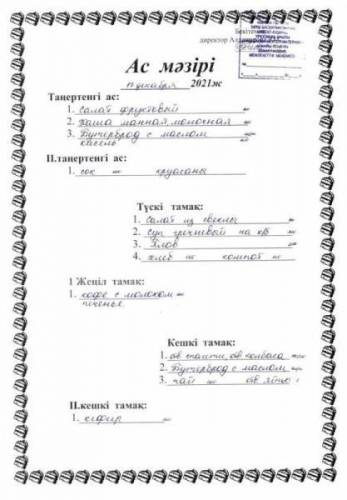 Бекітемін
директор
Ас мәзірі
декабря 2021ж
Таңертенгі ас:
1. Салат фруктовый
2. Каша манная молочная
3. Бутерброд с маслом
II.таңертенгі ас:
1. сок круасаны
Түскі тамақ:
1. Салат из свеклы
2. Суп гречневый на к/б
3. Плов
4. хлеб компот
1 Жеңіл тамақ:
1. кофе с молоком
печенье
Кешкі тамақ:
1. отв спагетти, отв колбаса
2. Бутерброд с маслом
3. чай отв яйцо
II.кешкі тамақ:
1. кефир